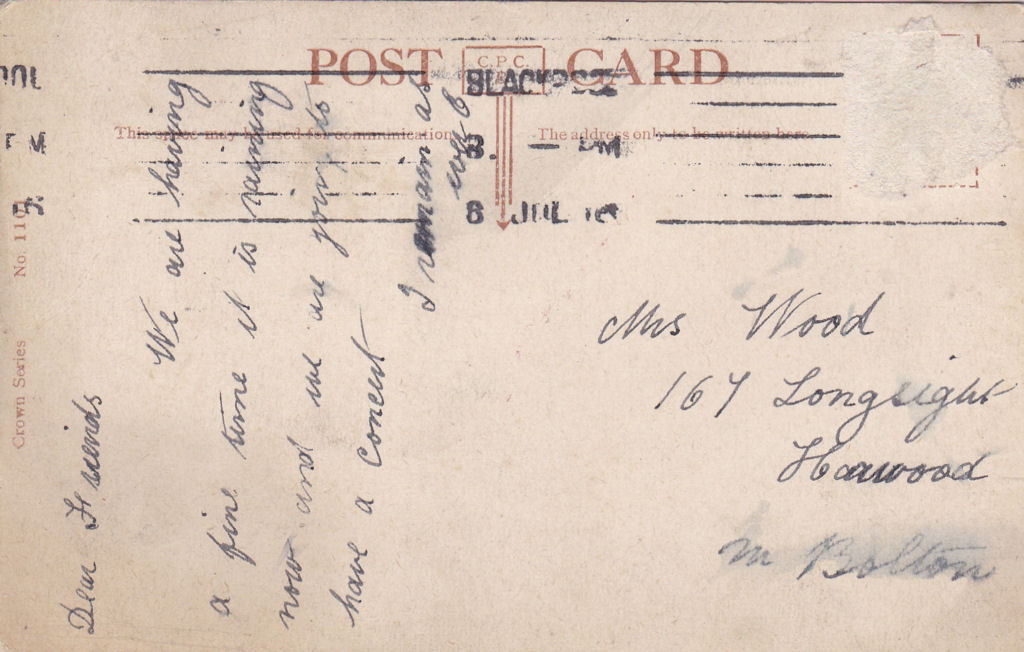 POST CARD
C.P.C.
BLACKPOOL
This space may be used for communication
The address only to be written here
8. — PM
6 JUL
Crown Series No. 110
Dear Friends
We are having
a fine time it is raining
now and we are going to
have a concert
I remain as
Mrs Wood
167 Longsight
Harwood
Bolton